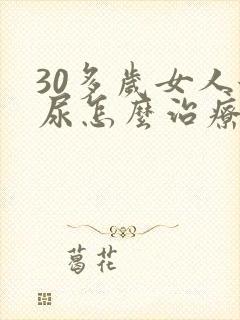 30多歲女人
尿怎麼治療
葛花